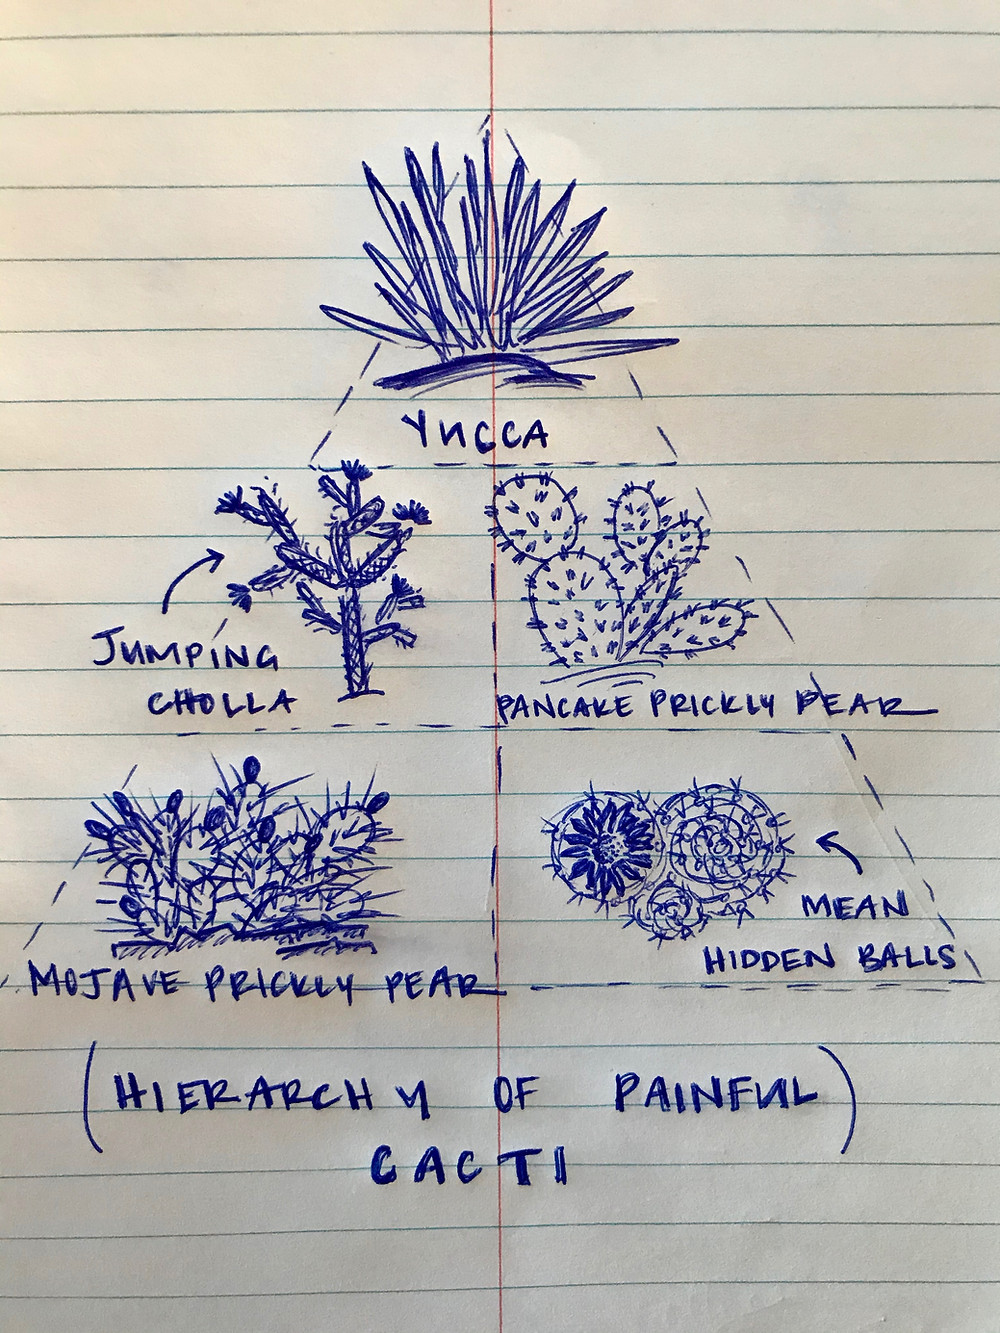 YUCCA
JUMPING
CHOLLA
PANCAKE PRICKLY PEAR
MEAN
HIDDEN BALLS
MOJAVE PRICKLY PEAR
(HIERARCHY OF PAINFUL)
CACTI